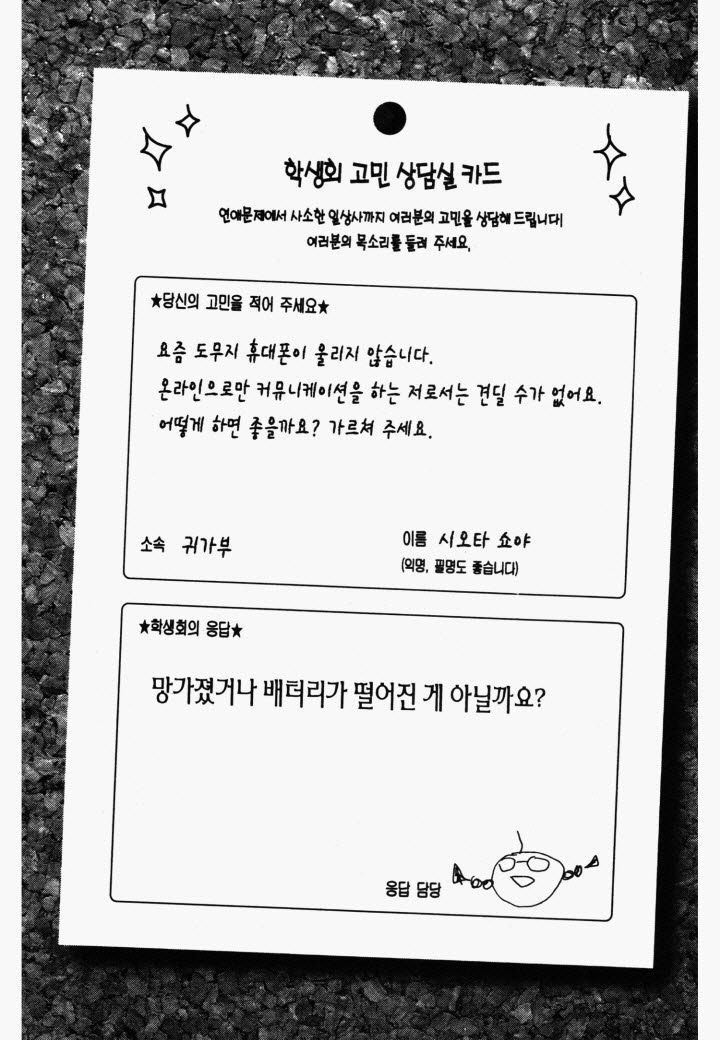 학생회 고민 상담실 카드
연애문제에서 사소한 일상사까지 여러분의 고민을 상담해 드립니다!
여러분의 목소리를 들려 주세요.
★당신의 고민을 적어 주세요★
요즘 도무지 휴대폰이 울리지 않습니다.
온라인으로만 커뮤니케이션을 하는 저로서는 견딜 수가 없어요.
어떻게 하면 좋을까요? 가르쳐 주세요.
소속 귀가부
이름 시오타 쇼야
(익명, 필명도 좋습니다)
★학생회의 응답★
망가졌거나 배터리가 떨어진 게 아닐까요?
응답 담당